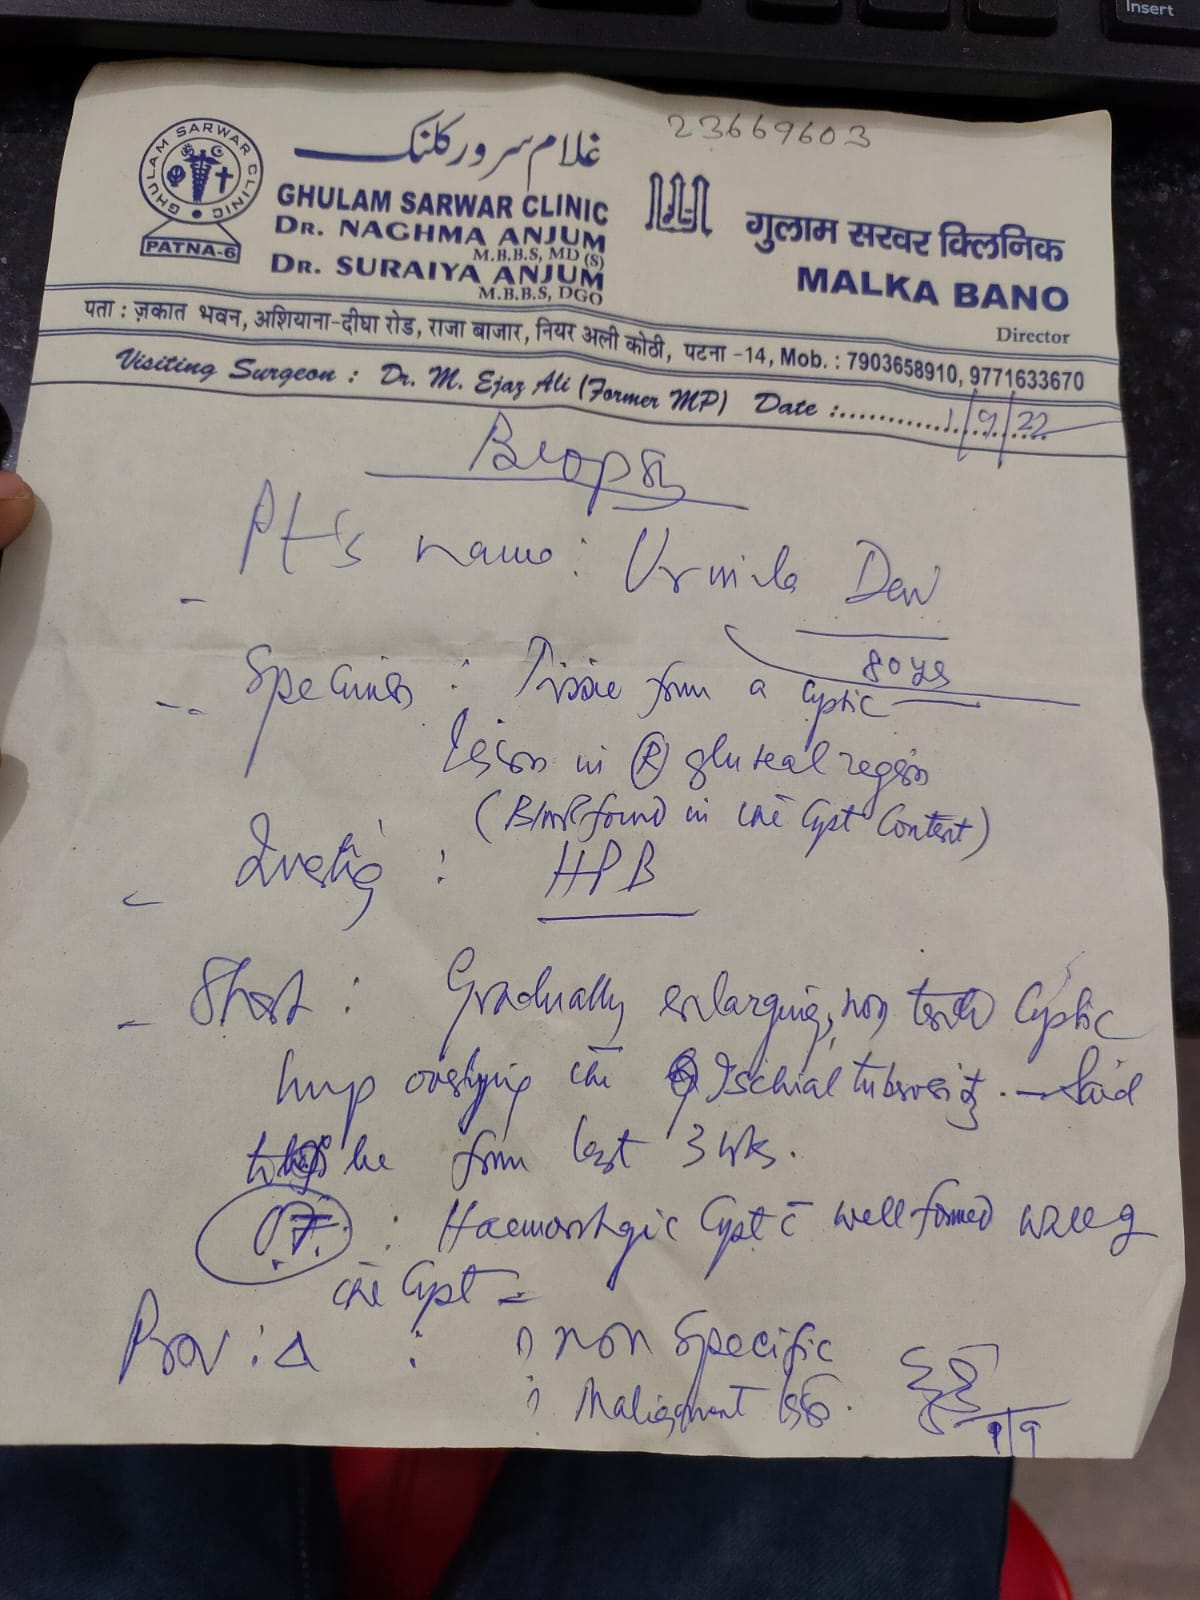 23669603
GHULAM SARWAR CLINIC
PATNA-6
غلام سرور کلنک
GHULAM SARWAR CLINIC
DR. NAGHMA ANJUM
M.B.B.S, MD (S)
DR. SURAIYA ANJUM
M.B.B.S, DGO
गुलाम सरवर क्लिनिक
MALKA BANO
Director
पता : ज़कात भवन, अशियाना-दीघा रोड, राजा बाजार, नियर अली कोठी, पटना -14, Mob. : 7903658910, 9771633670
Visiting Surgeon : Dr. M. Ejaz Ali (Former MP) Date :.............. 1/9/22
Biopsy
Pt's name : Urmila Devi
80 ys
Specimen : Tissue from a cystic
lesion in (R) gluteal region
( found in the Cyst Content)
Investig : HPB
Short : Gradually enlarging, non Cystic
lump overlying the Ischial tuberosity. - Said
be from last 3 wks.
O.F. : Haemorrhagic Cyst c̄ well formed
the Cyst
Prov : Δ : non specific
Malignant
1/9
Insert